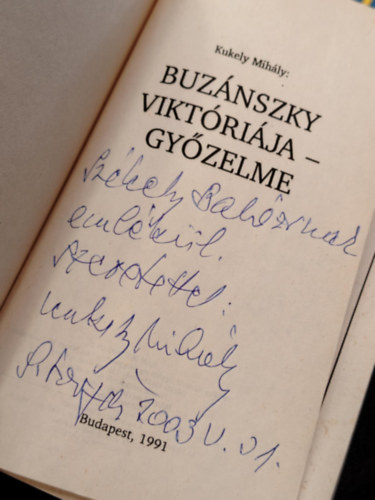 Kukely Mihály:
BUZÁNSZKY
VIKTÓRIÁJA –
GYŐZELME
Székely Balázsnak
emlékül.
szeretettel:
Kukely Mihály
2003 V. 01.
Budapest, 1991